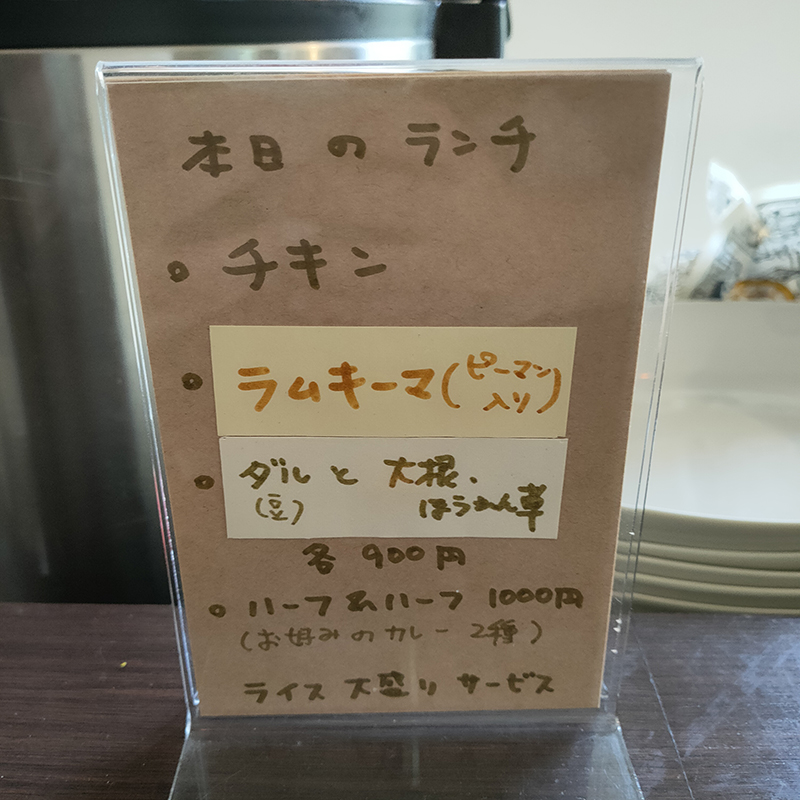 本日のランチ
。チキン
。ラムキーマ(ピーマン入り)
。ダルと大根、
(豆) ほうれん草
各900円
。ハーフ&ハーフ 1000円
(お好みのカレー2種)
ライス大盛りサービス